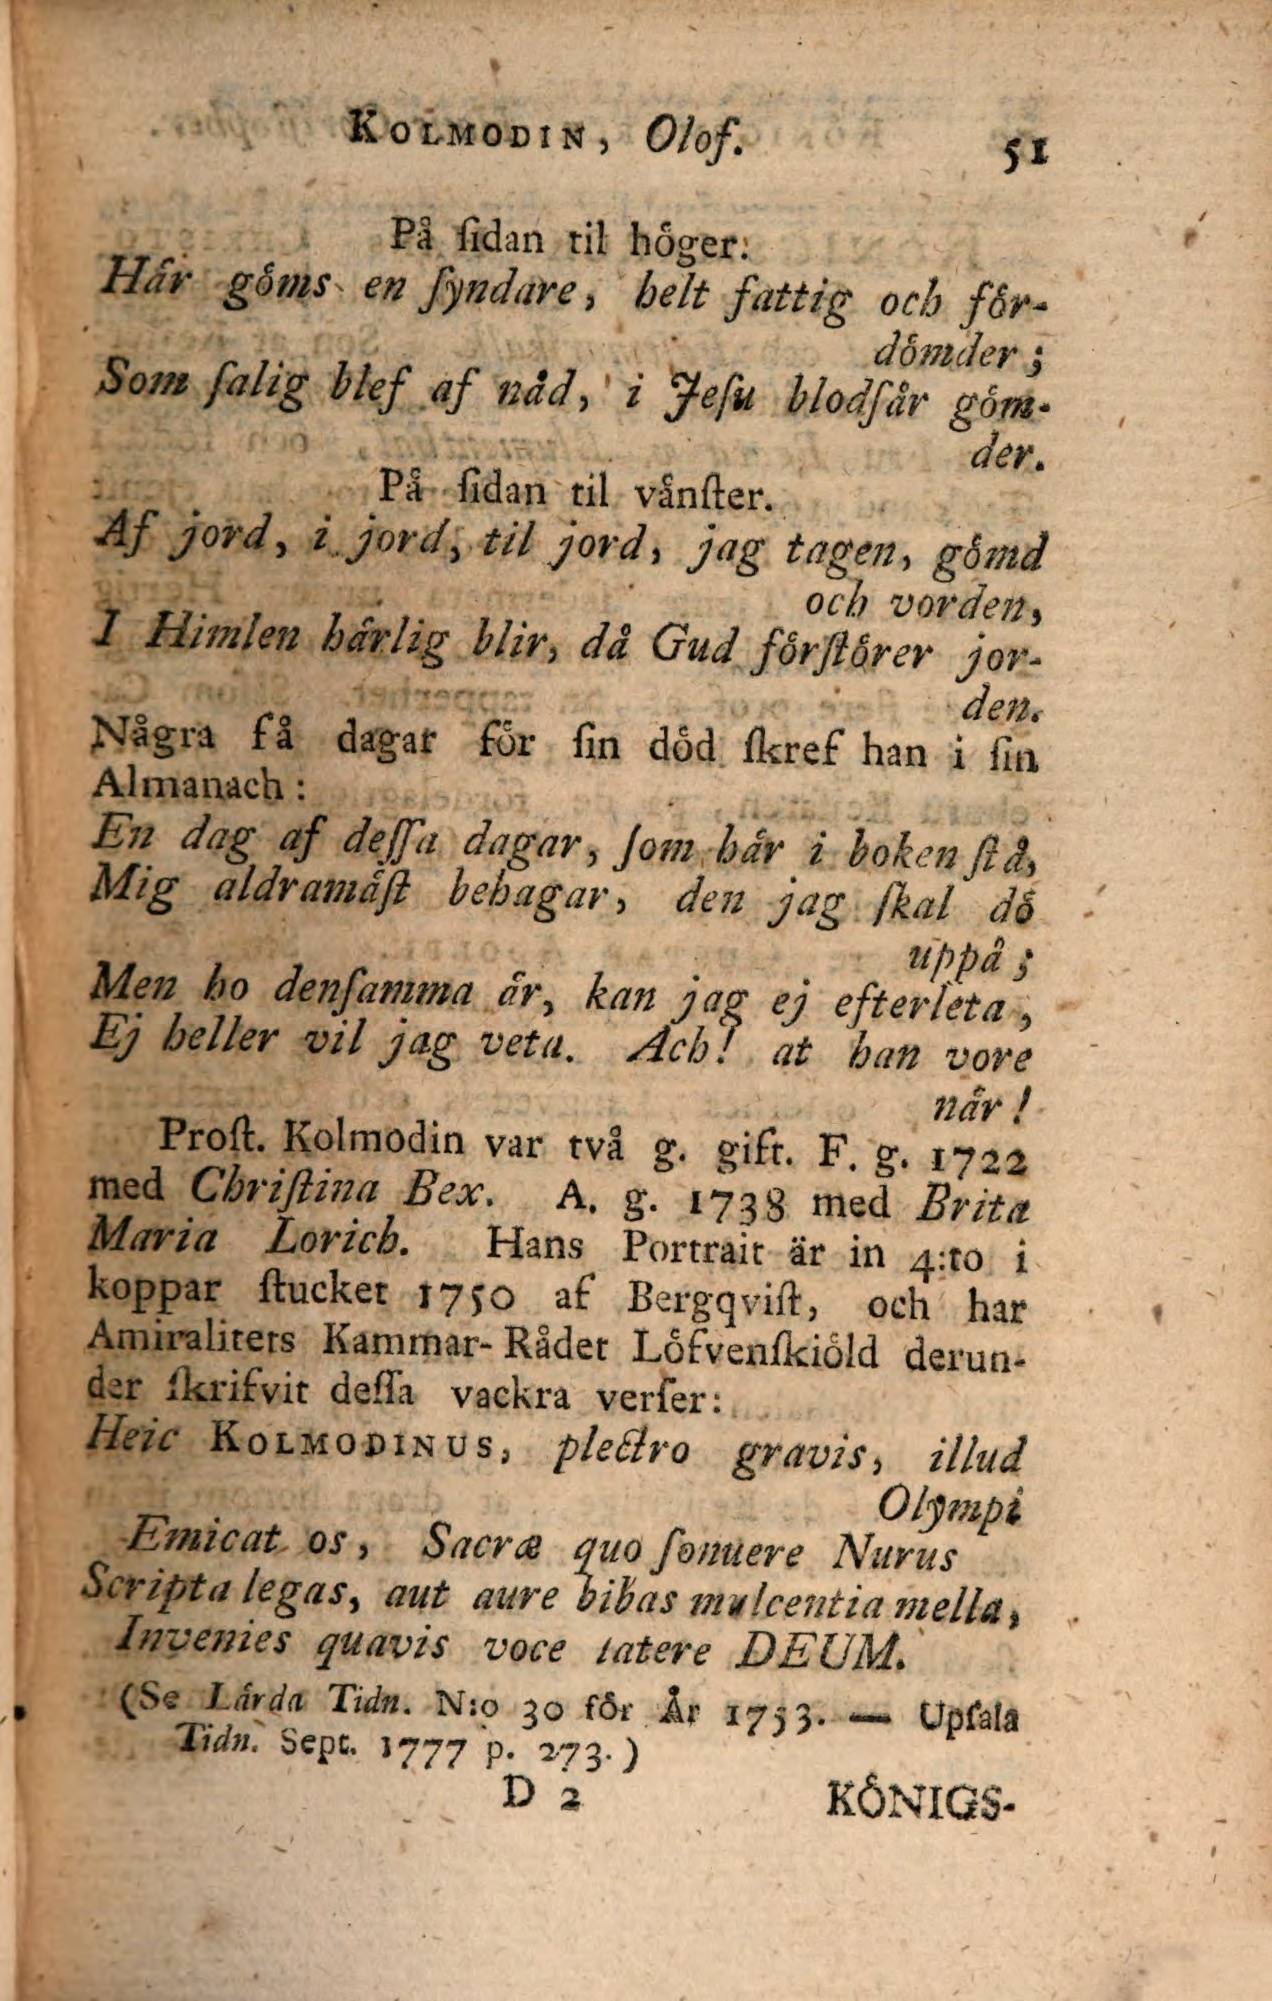 KOLMODIN, Olof. 51
På ſidan til höger:
Här göms en ſyndare, helt fattig och för-
dömder;
Som ſalig blef af nåd, i Jeſu blodſår göm-
der.
På ſidan til vänſter.
Af jord, i jord, til jord, jag tagen, gömd
och vorden,
I Himlen härlig blir, då Gud förſtörer jor-
den.
Några få dagar för ſin död ſkref han i ſin
Almanach:
En dag af deſſa dagar, ſom här i boken ſtå,
Mig aldramäſt behagar, den jag ſkal dö
uppå;
Men ho denſamma är, kan jag ej efterleta,
Ej heller vil jag veta. Ach! at han vore
när!
Proſt. Kolmodin var två g. gift. F. g. 1722
med Chriſtina Bex. A. g. 1738 med Brita
Maria Lorich. Hans Portrait är in 4:to i
koppar ſtucket 1750 af Bergqviſt, och har
Amiralitets Kammar-Rådet Löfvenſkiöld derun-
der ſkrifvit deſſa vackra verſer:
Heic KOLMODINUS, plectro gravis, illud
Olympi
Emicat os, Sacræ quo ſonuere Nurus
Scripta legas, aut aure bibas mulcentia mella,
Invenies quavis voce latere DEUM.
(Se Lärda Tidn. N:o 30 för År 1753. — Upſala
Tidn. Sept. 1777 p. 273.)
D 2 KÖNIGS-